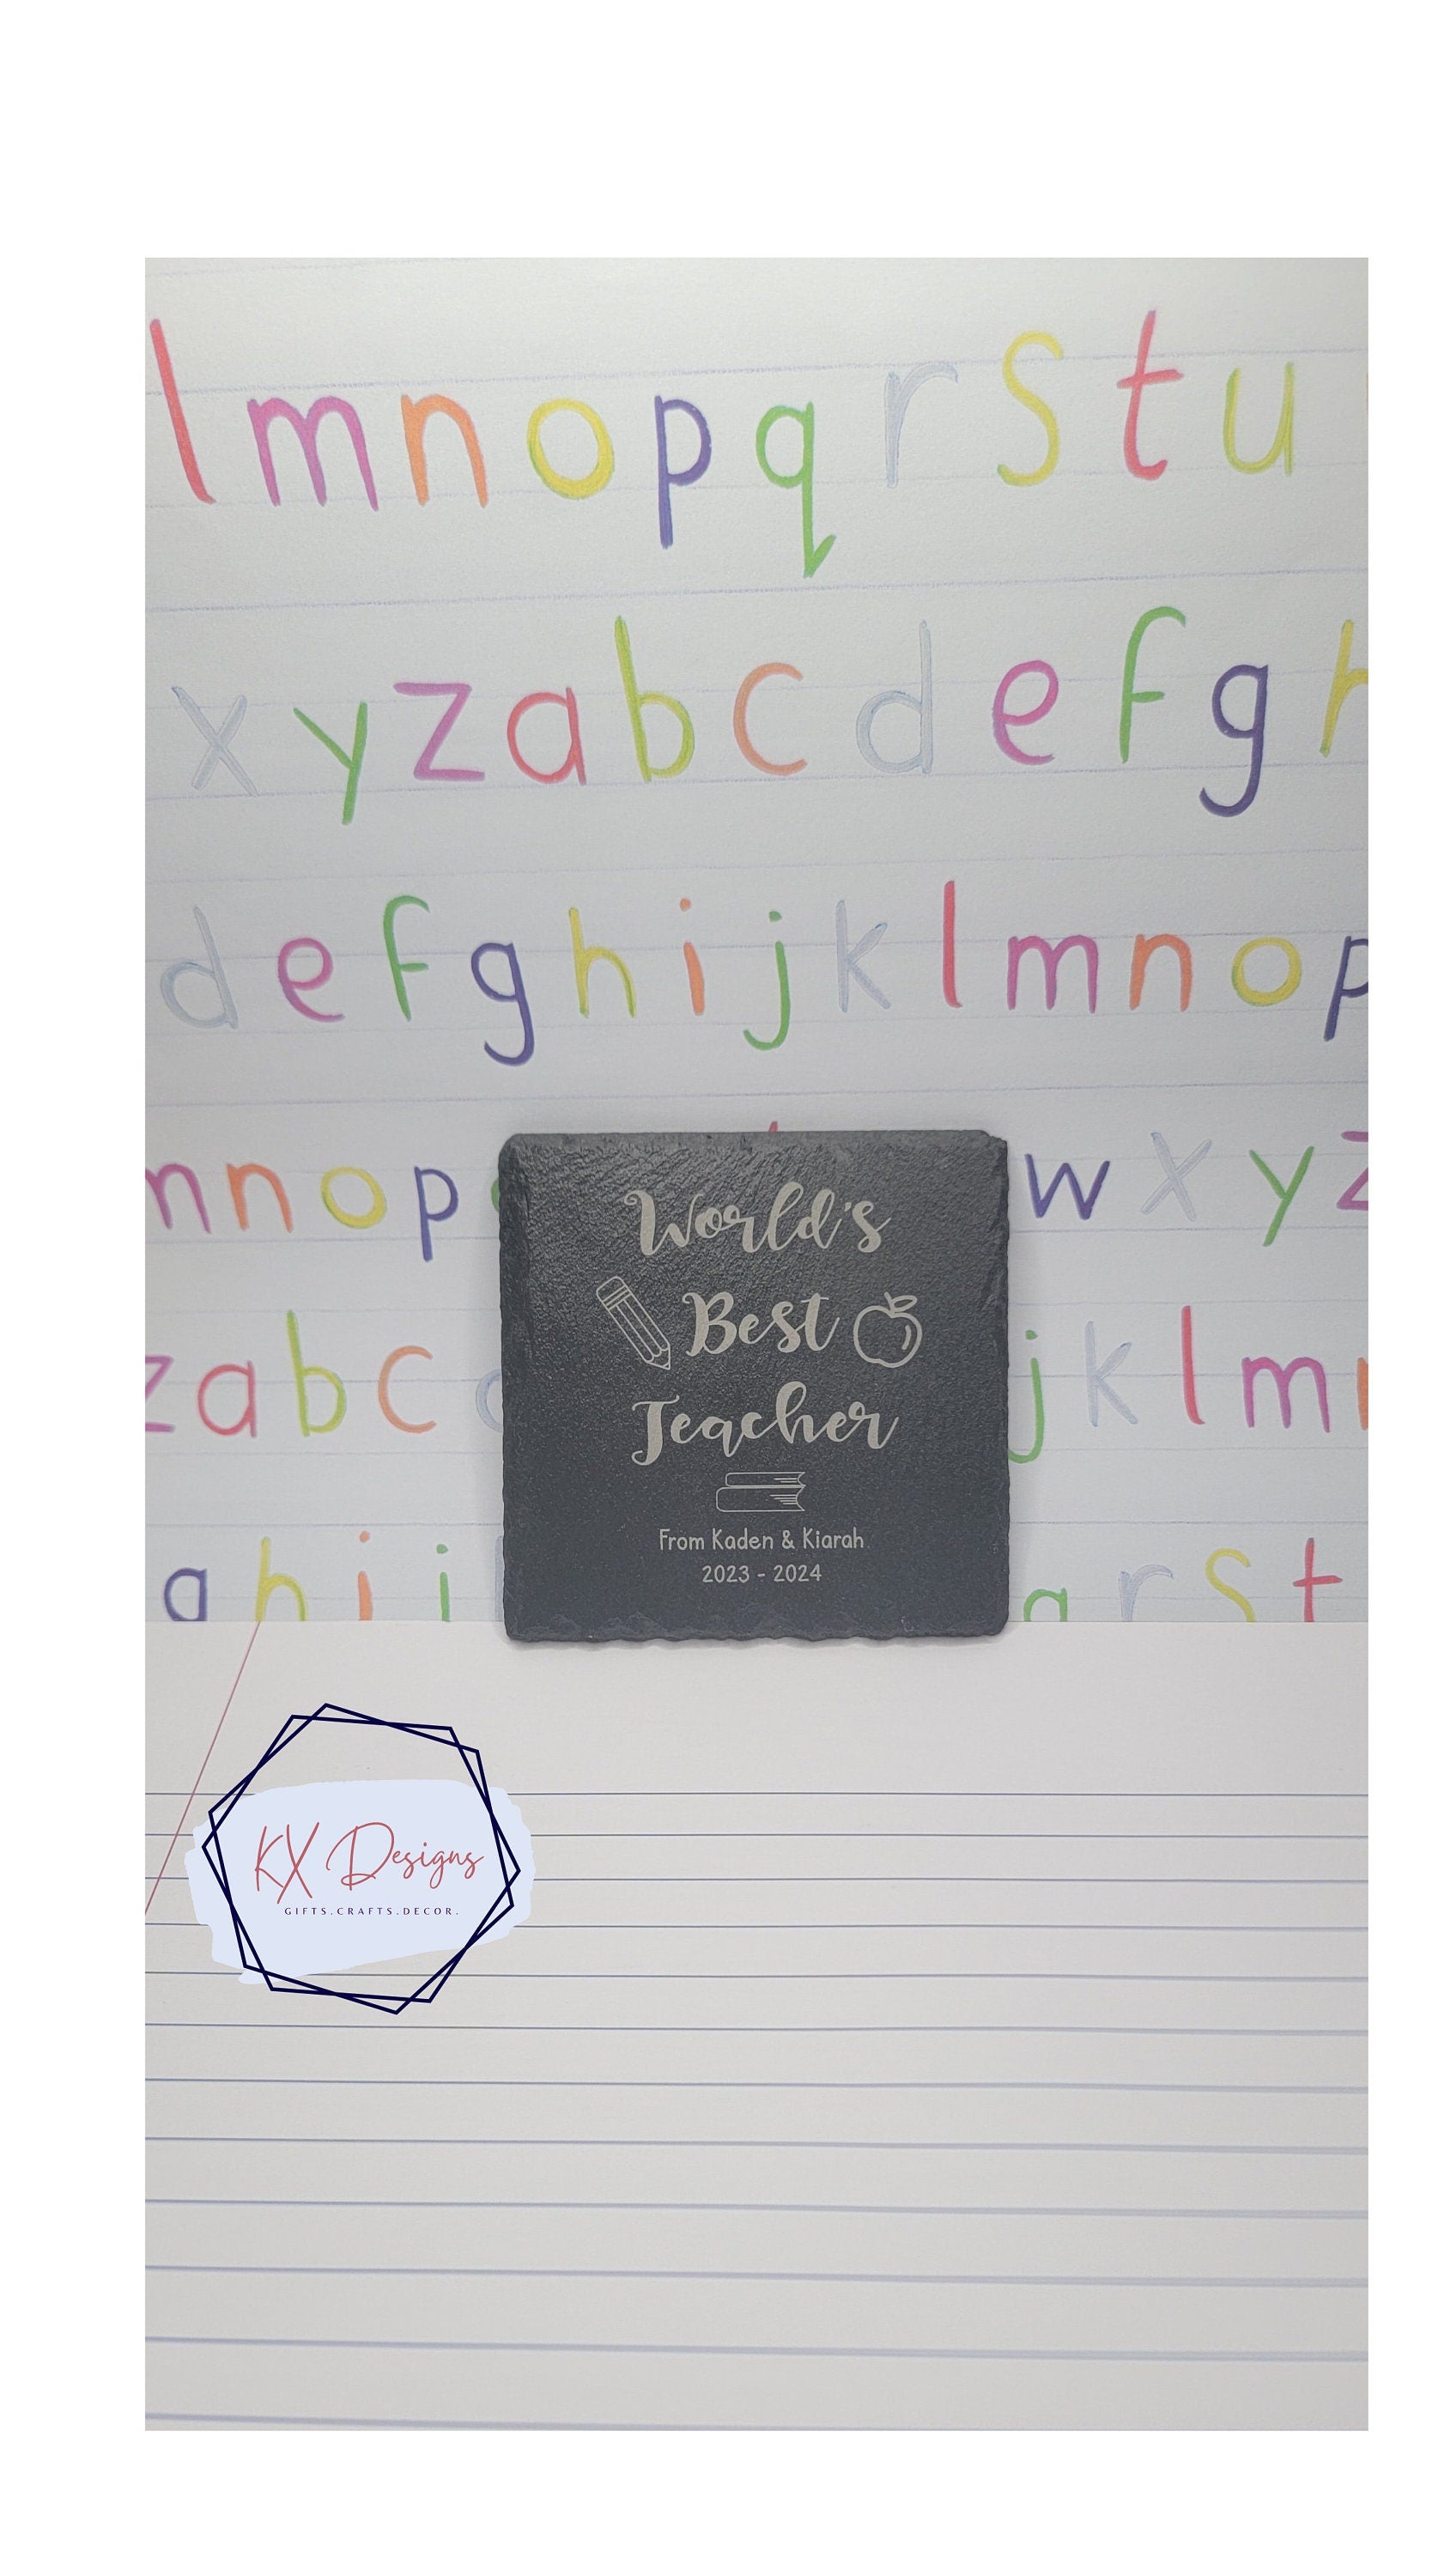 l m n o p q r s t u
x y z a b c d e f g h
d e f g h i j k l m n o p
m n o p w x y z
z a b c j k l m
h i r s t
World's
Best
Teacher
From Kaden & Kiarah
2023 - 2024
KX Designs
GIFTS.CRAFTS.DECOR.